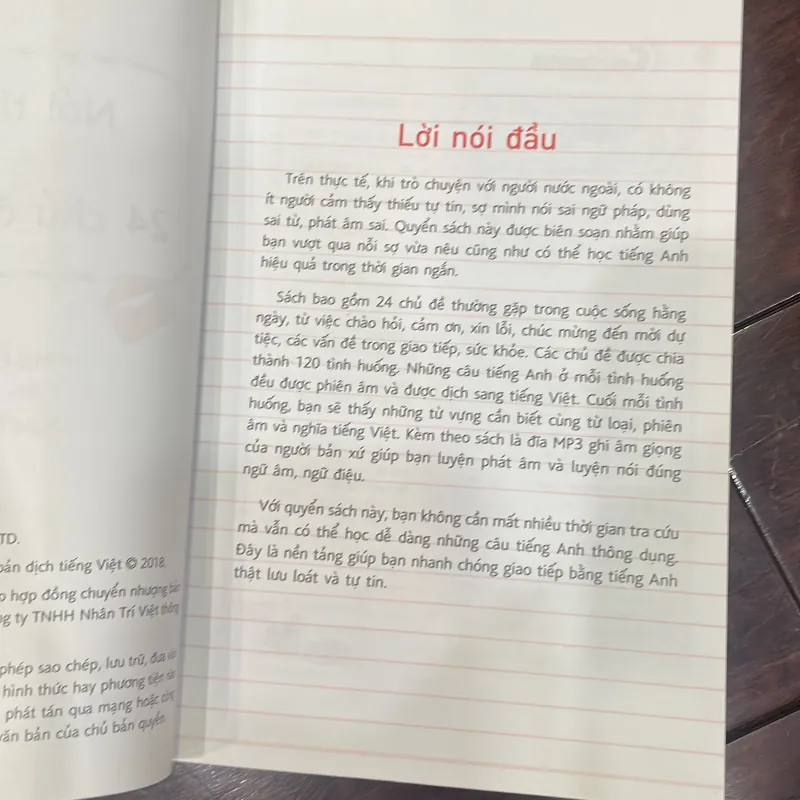 TD.
bản dịch tiếng Việt © 2018.
hợp đồng chuyển nhượng bản
ty TNHH Nhân Trí Việt thông
phép sao chép, lưu trữ, đưa vào
hình thức hay phương tiện nào
phát tán qua mạng hoặc
văn bản của chủ bản quyền.
Lời nói đầu
Trên thực tế, khi trò chuyện với người nước ngoài, có không
ít người cảm thấy thiếu tự tin, sợ mình nói sai ngữ pháp, dùng
sai từ, phát âm sai. Quyển sách này được biên soạn nhằm giúp
bạn vượt qua nỗi sợ vừa nêu cũng như có thể học tiếng Anh
hiệu quả trong thời gian ngắn.
Sách bao gồm 24 chủ đề thường gặp trong cuộc sống hằng
ngày, từ việc chào hỏi, cảm ơn, xin lỗi, chúc mừng đến mời dự
tiệc, các vấn đề trong giao tiếp, sức khỏe. Các chủ đề được chia
thành 120 tình huống. Những câu tiếng Anh ở mỗi tình huống
đều được phiên âm và được dịch sang tiếng Việt. Cuối mỗi tình
huống, bạn sẽ thấy những từ vựng cần biết cùng từ loại, phiên
âm và nghĩa tiếng Việt. Kèm theo sách là đĩa MP3 ghi âm giọng
của người bản xứ giúp bạn luyện phát âm và luyện nói đúng
ngữ âm, ngữ điệu.
Với quyển sách này, bạn không cần mất nhiều thời gian tra cứu
mà vẫn có thể học dễ dàng những câu tiếng Anh thông dụng.
Đây là nền tảng giúp bạn nhanh chóng giao tiếp bằng tiếng Anh
thật lưu loát và tự tin.